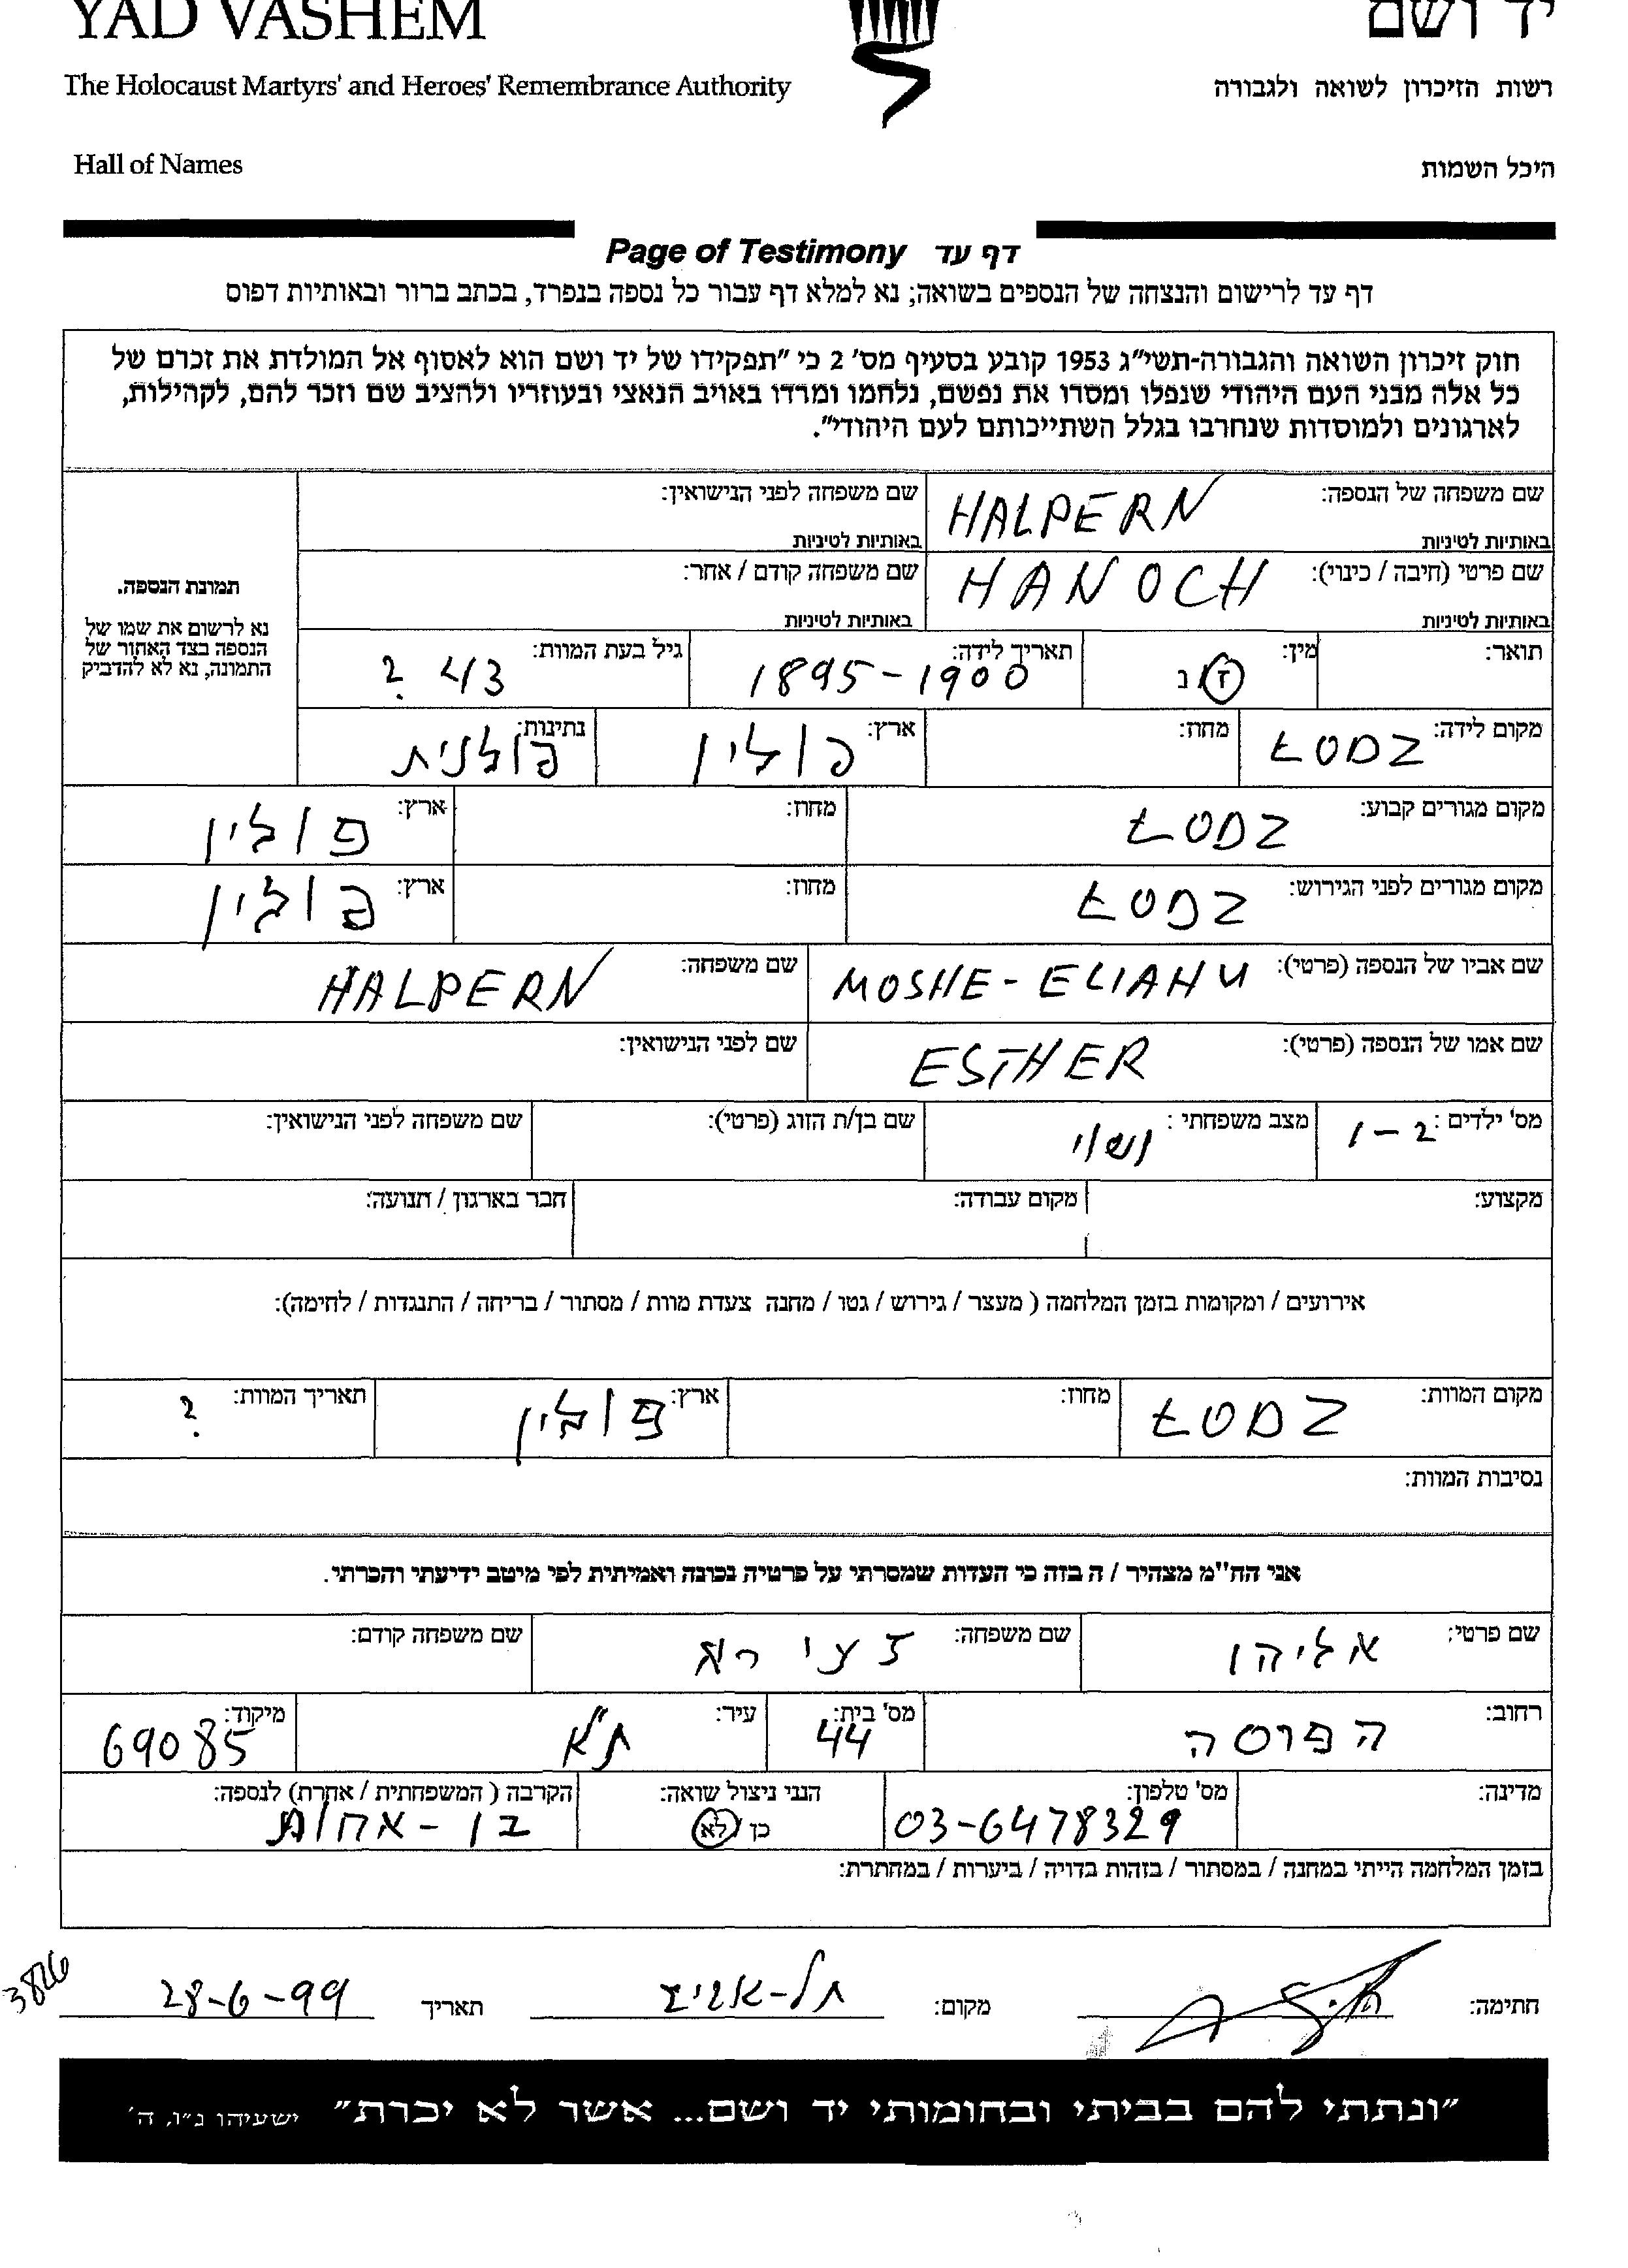 YAD VASHEM יד ושם
The Holocaust Martyrs' and Heroes' Remembrance Authority רשות הזיכרון לשואה ולגבורה
Hall of Names היכל השמות
Page of Testimony דף עד
דף עד לרישום והנצחה של הנספים בשואה; נא למלא דף עבור כל נספה בנפרד, בכתב ברור ובאותיות דפוס
חוק זיכרון השואה והגבורה-תשי"ג 1953 קובע בסעיף מס' 2 כי "תפקידו של יד ושם הוא לאסוף אל המולדת את זכרם של
כל אלה מבני העם היהודי שנפלו ומסרו את נפשם, נלחמו ומרדו באויב הנאצי ובעוזריו ולהציב שם וזכר להם, לקהילות,
לארגונים ולמוסדות שנחרבו בגלל השתייכותם לעם היהודי".
שם משפחה של הנספה: HALPERN שם משפחה לפני הנישואין:
באותיות לטיניות באותיות לטיניות
שם פרטי (חיבה / כינוי): HANOCH שם משפחה קודם / אחר:
באותיות לטיניות באותיות לטיניות
תמונת הנספה.
נא לרשום את שמו של
הנספה בצד האחור של
התמונה, נא לא להדביק
תואר: מין: ז / נ תאריך לידה: 1895-1900 גיל בעת המוות: 43 ?
מקום לידה: ŁODZ מחוז: ארץ: פולין נתינות: פולנית
מקום מגורים קבוע: ŁODZ מחוז: ארץ: פולין
מקום מגורים לפני הגירוש: ŁODZ מחוז: ארץ: פולין
שם אביו של הנספה (פרטי): MOSHE-ELIAHU שם משפחה: HALPERN
שם אמו של הנספה (פרטי): ESTHER שם לפני הנישואין:
מס' ילדים: 1-2 מצב משפחתי: נשוי שם בן/ת הזוג (פרטי): שם משפחה לפני הנישואין:
מקצוע: מקום עבודה: חבר בארגון / תנועה:
אירועים / ומקומות בזמן המלחמה ( מעצר / גירוש / גטו / מחנה צעדת מוות / מסתור / בריחה / התנגדות / לחימה):
מקום המוות: ŁODZ מחוז: ארץ: פולין תאריך המוות: ?
נסיבות המוות:
אני הח"מ מצהיר / ה בזה כי העדות שמסרתי על פרטיה נכונה ואמיתית לפי מיטב ידיעתי והכרתי.
שם פרטי: אליהו שם משפחה: שם משפחה קודם:
רחוב: מס' בית: 44 עיר: ת"א מיקוד: 69085
מדינה: מס' טלפון: 03-6478329 הנני ניצול שואה: כן / לא הקרבה ( המשפחתית / אחרת) לנספה: בן-אחות
בזמן המלחמה הייתי במחנה / במסתור / בזהות בדויה / ביערות / במחתרת:
חתימה: מקום: תל-אביב תאריך 28-6-99
3826
"ונתתי להם בביתי ובחומותי יד ושם... אשר לא יכרת" ישעיהו נ"ו, ה'